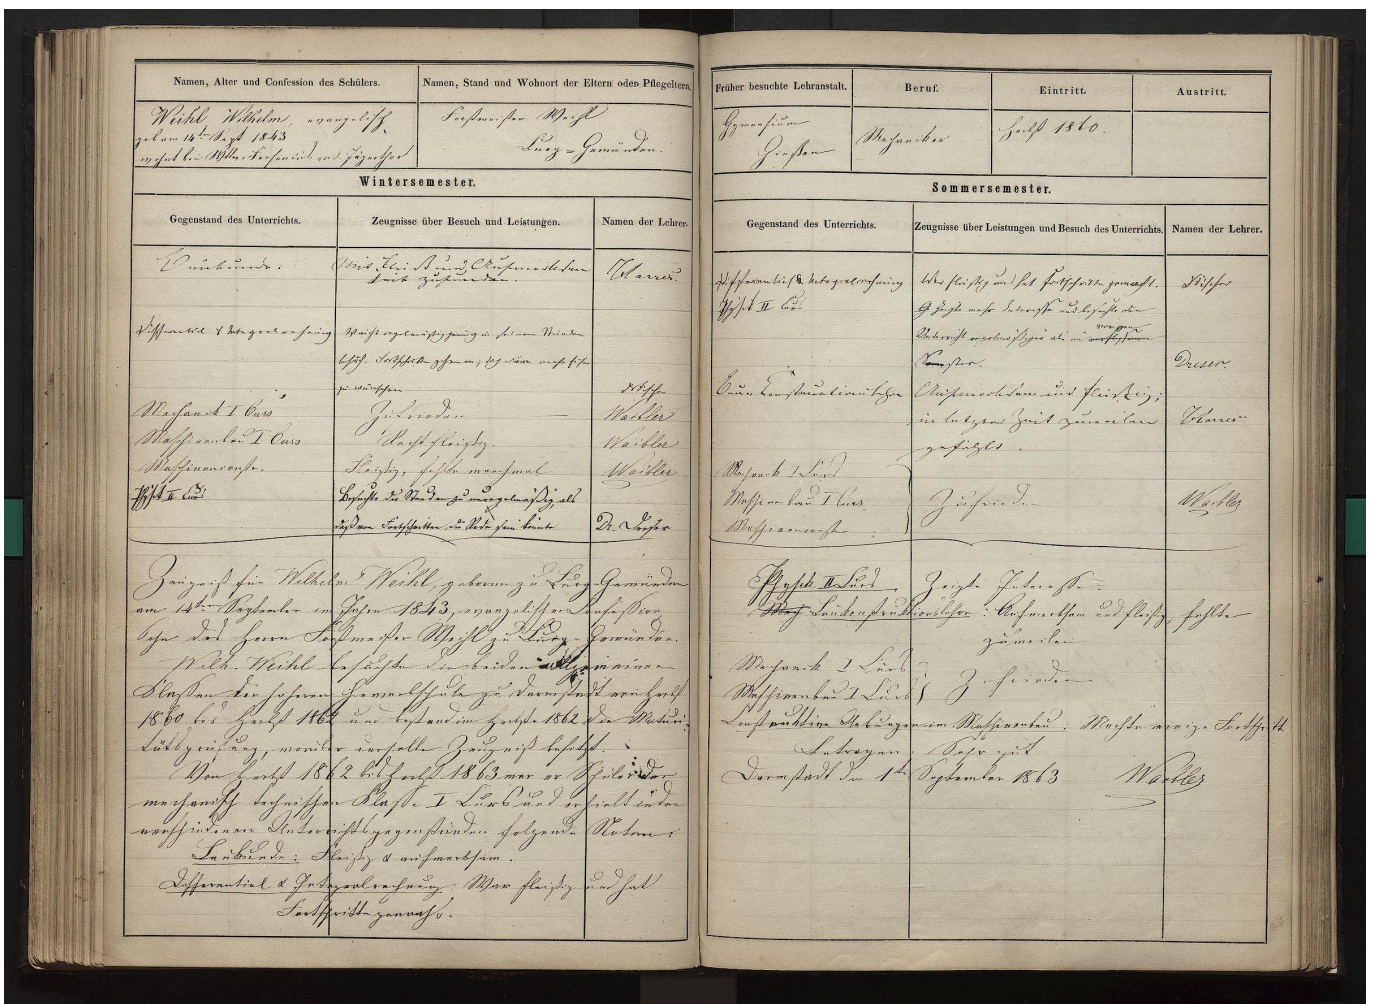 Namen, Alter und Confession des Schülers.
Namen, Stand und Wohnort der Eltern oder Pflegeltern.
Weihl Wilhelm, evangelisch,
geb. am 14ten Sept 1843
wohnt bei Wttw. Fresenius vor d. Jägerthor
Forstmeister Weihl
Burg-Gemünden.
Wintersemester.
Gegenstand des Unterrichts.
Zeugnisse über Besuch und Leistungen.
Namen der Lehrer.
Baukunde:
Mit Fleiß und Aufmerksam
keit zufrieden.
Harres.
Differential & Integralrechnung
regelmäßig genug in seinen Stunden
Fortschritte gehen an, doch wäre mehr Eifer
zu wünschen
Fischer
Mechanik I Curs
Zufrieden
Waibler
Maschinenbau I Curs
Recht fleißig.
Waibler
Maschinenconstr.
Fleißig, fehlte manchmal
Waibler
Physik II Curs
Besuchte die Stunden zu unregelmäßig, als
daß von Fortschritten die Rede sein könnte
Dr. Dreser
Zeugniß für Wilhelm Weihl, geboren zu Burg-Gemünden
am 14ten September im Jahre 1843, evangelischer Confession
Sohn des Herrn Forstmeister Weihl zu Burg-Gemünden.
Wilh. Weihl besuchte die beiden allgemeinen
Klassen der höheren Gewerbschule zu Darmstadt von Herbst
1860 bis Herbst 1862 und bestand im Herbste 1862 die Maturi-
tätsprüfung, worüber derselbe Zeugniß besitzt.
Von Herbst 1862 bis Herbst 1863 war er Schüler der
mechanisch technischen Klasse I Curs und erhielt in den
verschiedenen Unterrichtsgegenständen folgende Noten:
Baukunde: Fleißig & aufmerksam.
Differential & Integralrechnung: War fleißig und hat
Fortschritte gemacht.
Früher besuchte Lehranstalt.
Beruf.
Eintritt.
Austritt.
Gymnasium
Gießen
Mechaniker
Herbst 1860.
Sommersemester.
Gegenstand des Unterrichts.
Zeugnisse über Leistungen und Besuch des Unterrichts.
Namen der Lehrer.
Differential & Integralrechnung
War fleißig u. hat Fortschritte gemacht.
Fischer
Physik II Curs
Er zeigte mehr Interesse und besuchte den
Unterricht regelmäßiger als im vorigen
Semester.
Dreser.
Bau Constructionslehre
Aufmerksam und fleißig;
in letzter Zeit zuweilen
gefehlt.
Harres
Mechanik I Curs
Maschinenbau I Curs
Maschinenconstr.
Zufrieden
Waibler
Physik II Curs
Zeigte Interesse.
Mech Bauconstruktionslehre: Aufmerksam und fleißig, fehlte
zuweilen
Mechanik I Curs
Maschinenbau I Curs
Zufrieden
Construktive Uebungen im Maschinenbau: Machte einige Fortschritte
Betragen: Sehr gut
Darmstadt den 1ten September 1863
Waibler